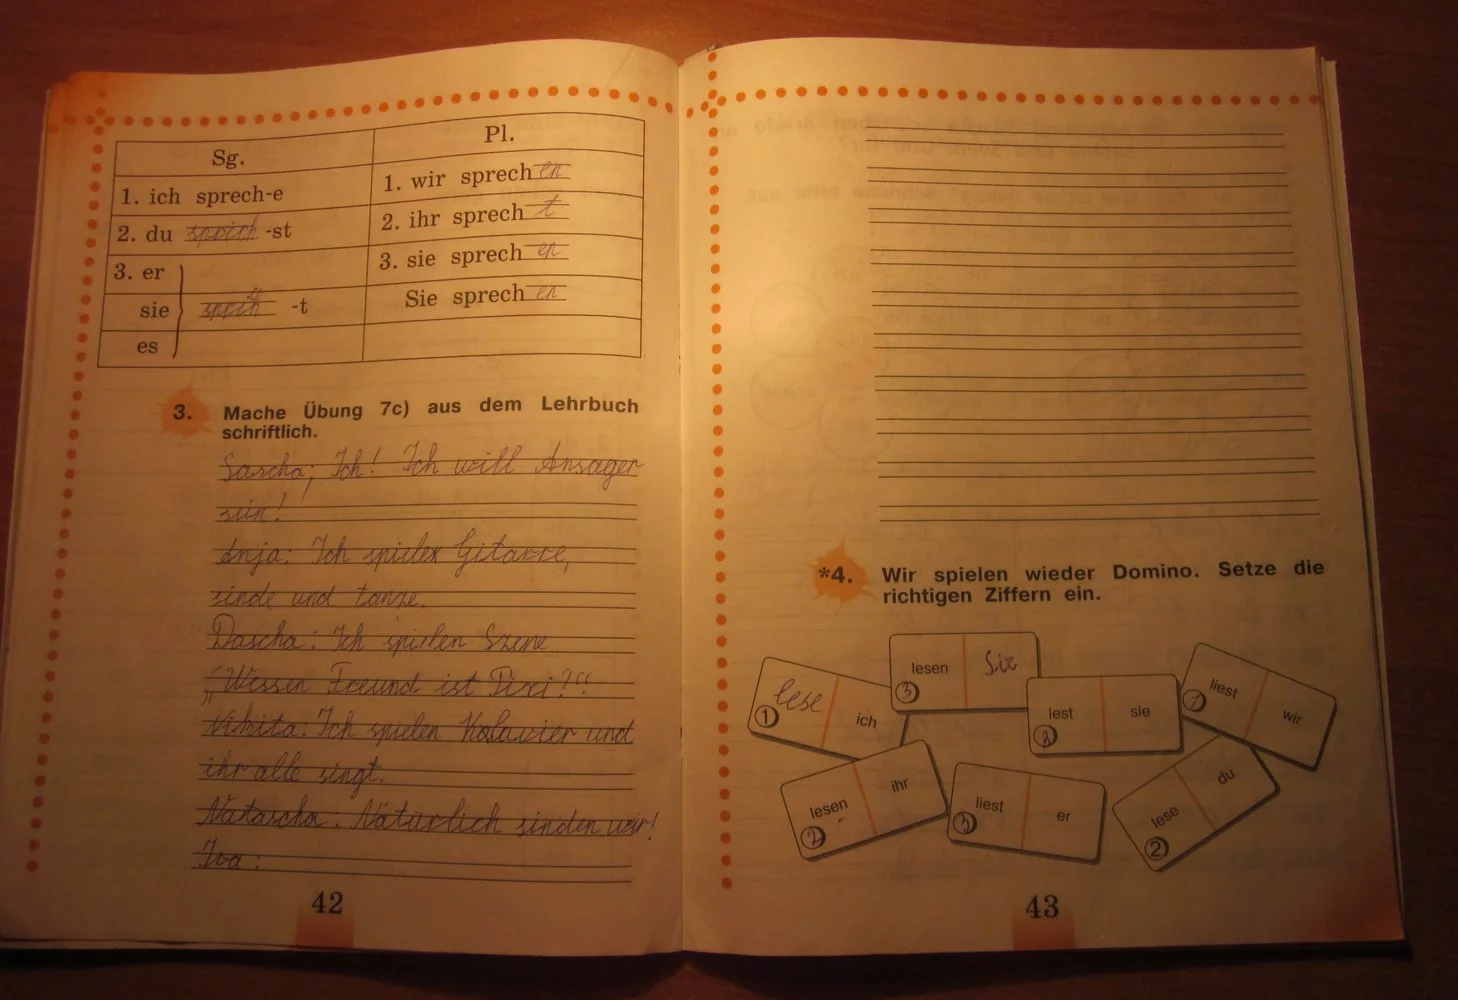 Sg.
Pl.
1. ich sprech-e
1. wir sprechen
2. du sprich-st
2. ihr sprecht
3. er
3. sie sprechen
sie -t
Sie sprechen
es
3. Mache Übung 7c) aus dem Lehrbuch
schriftlich.
Sascha; Ich! Ich will Ansager
sein!
Anja: Ich spielen Gitarre,
sinde und tanze.
Dascha: Ich spielen Szene
„Wessen Freund ist Pixi?“
Nikita: Ich spielen Kalavier und
ihr alle singt.
Natascha: Natürlich sinden wir!
Ira:
42
*4. Wir spielen wieder Domino. Setze die
richtigen Ziffern ein.
lesen Sie
3
lese ich
1
lest sie
liest wir
1
lesen ihr
2
liest er
3
lese du
2
43